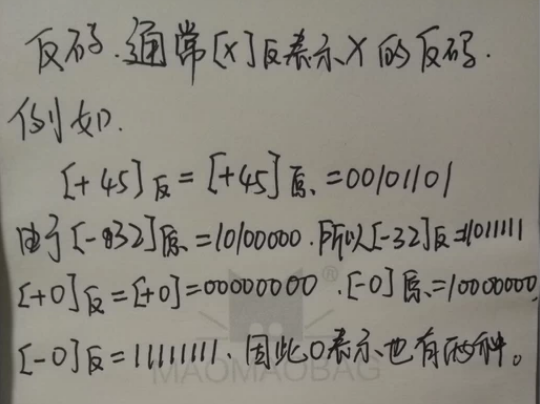 反码.通常[X]反表示X的反码.
例如.
[+45]反=[+45]原.=00101101
由于[-32]原=10100000.所以[-32]反=1011111
[+0]反=[+0]=00000000.[-0]原=10000000,
[-0]反=11111111、因此0表示也有两种。
MAOMAOBAG